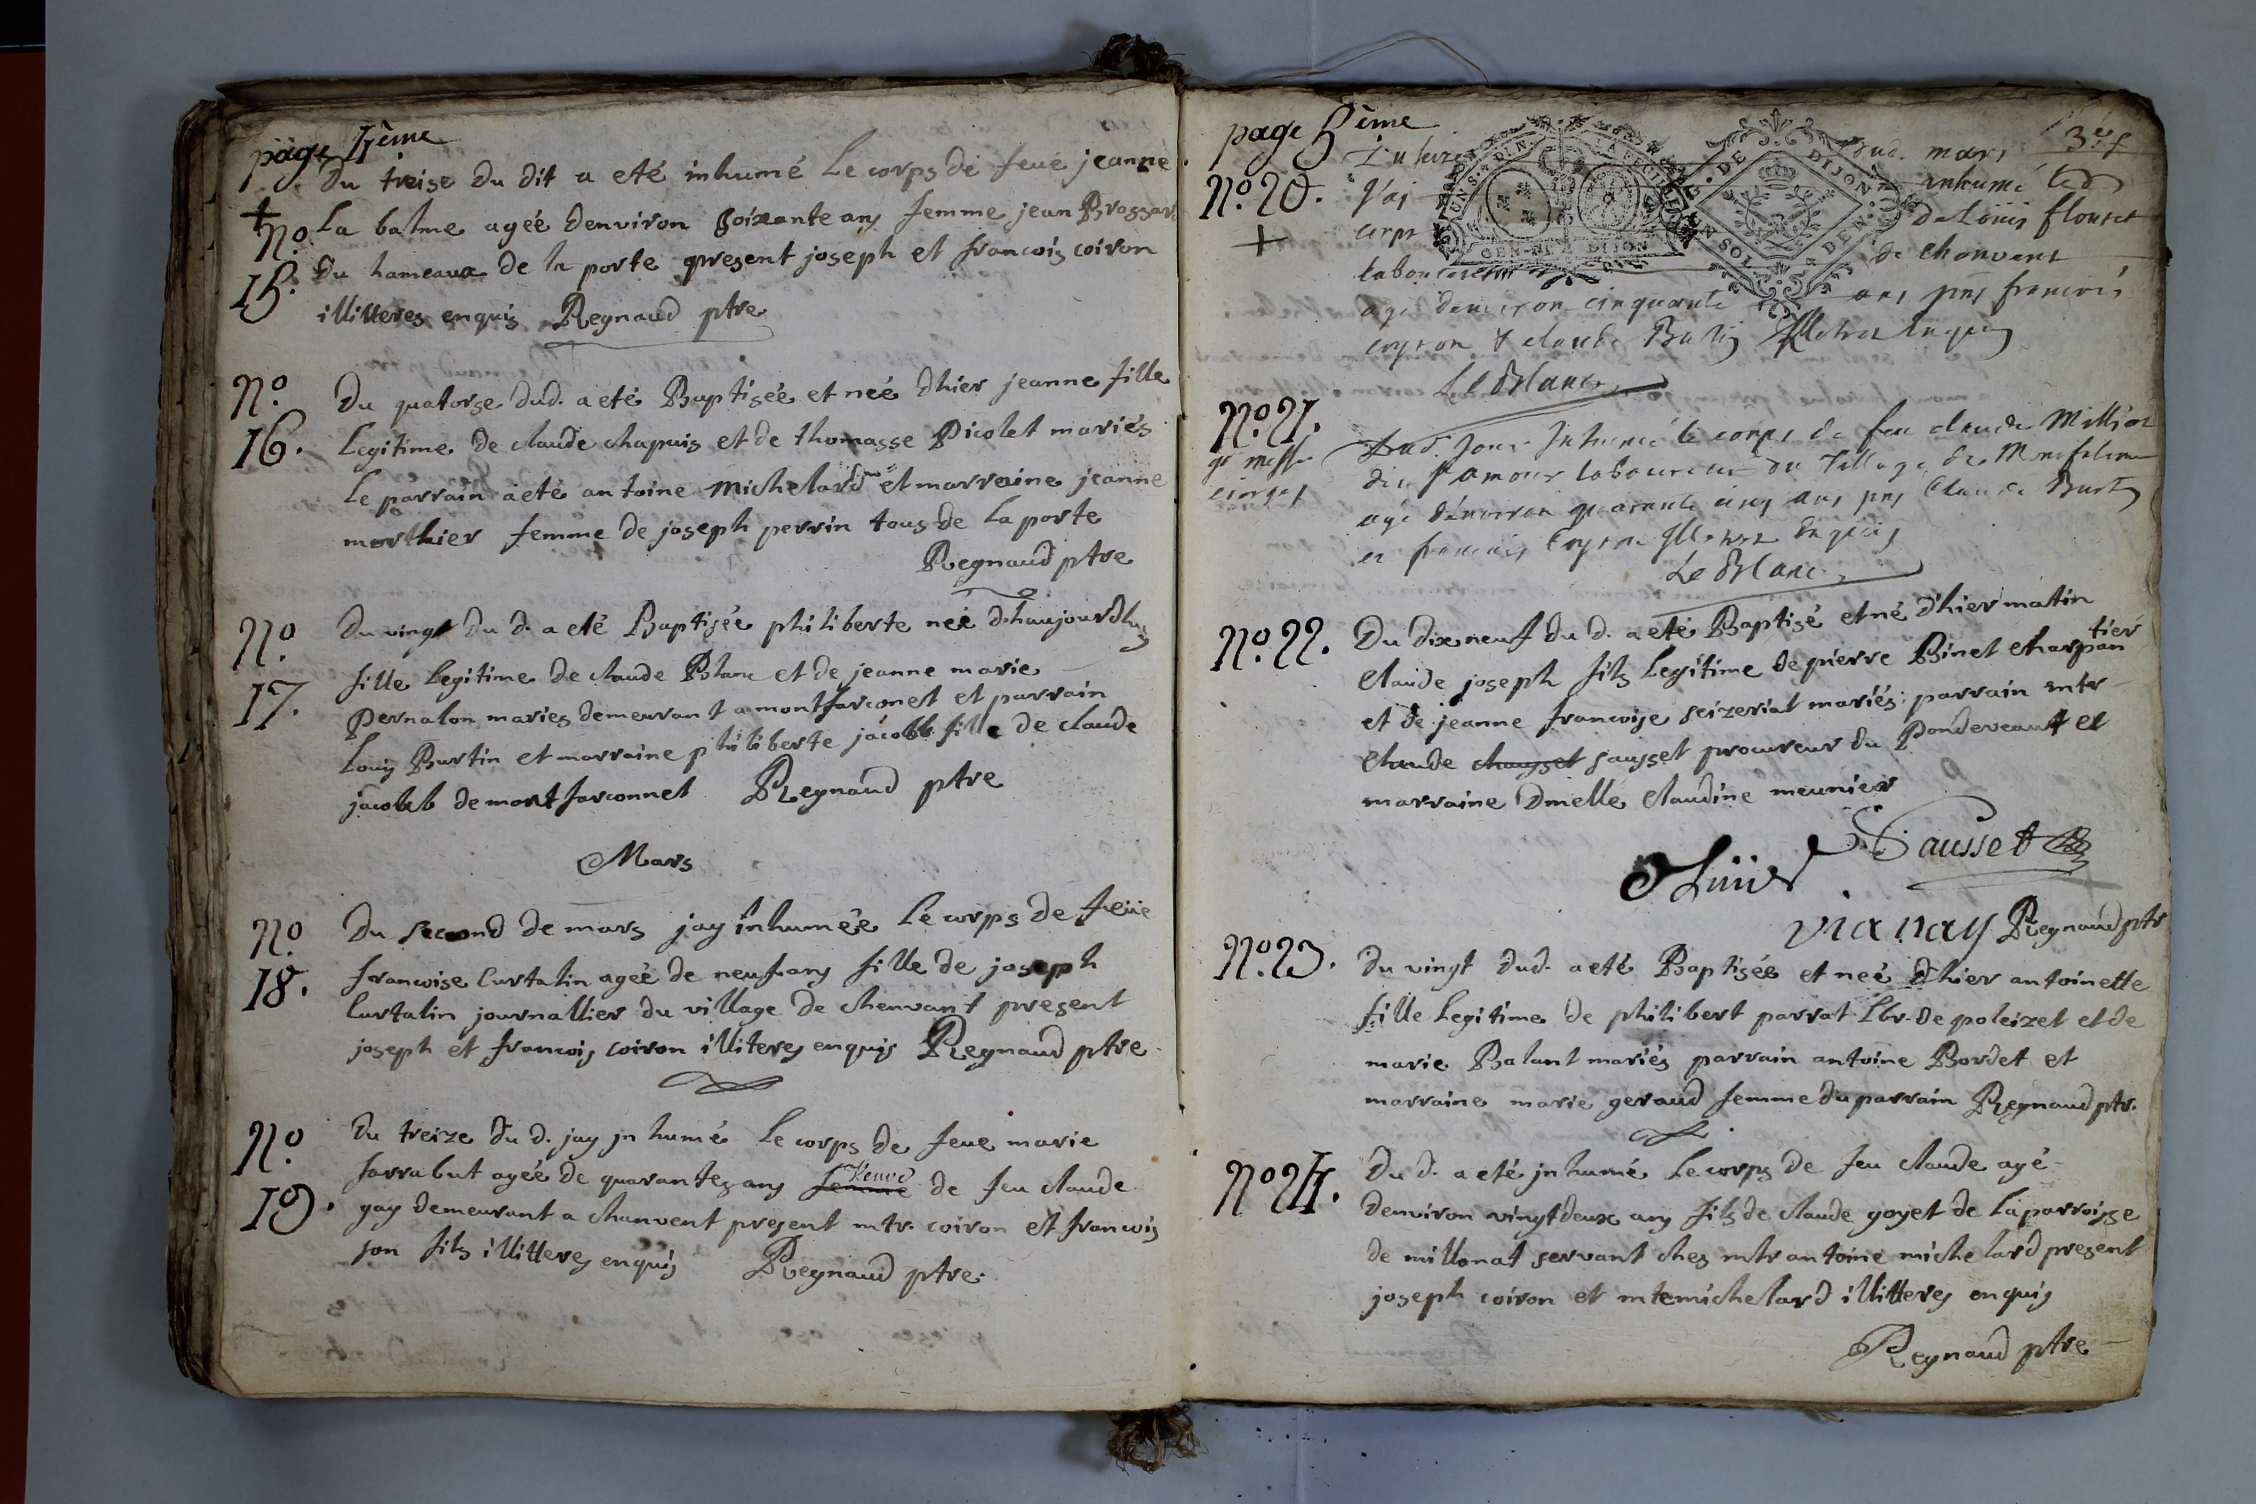 page 4ème
Du treise du dit a eté inhumé Le corps de feue jeanne
+
No.
15.
La balme agéé denviron Soixante ans femme jean Brossar
Du hameaux de la porte present joseph et francois coiron
illitteres enquis Regnaud ptre
No.
16.
Du quatorse dud. a eté Baptiséé et neé dhier jeanne fille
Legitime de claude chapuis et de thomasse Picolet mariés
Le parrain a eté antoine michelard et marraine jeanne
morthier femme de joseph perrin tous de La porte
Regnaud ptre
No.
17.
Du vingt du d. a eté Baptiséé philiberte neé dhaujourdhuy
fille Legitime de claude Blanc et de jeanne marie
Pernalon mariés demeurant a montfarconet et parrain
Louis Burtin et marraine philiberte jacobb fille de claude
jacobb de montfarconnet Regnaud ptre
Mars
No.
18.
Du second de mars jay inhumée Le corps de feüe
francoise Curtalin agéé de neuf ans fille de joseph
Curtalin journallier du village de chenvant present
joseph et francois coiron illiteres enquis Regnaud ptre
No.
19.
Du treize du d. jay jnhumé Le corps de feue marie
farrabut agéé de quarantes ans femme veuve de feu claude
gay demeurant a chanvent present mtr. coiron et francois
son fils illitteres enquis Regnaud ptre.
page 5ème
No. 20.
+
dud. mars
J'ai inhumé led
corps de Loüis flouret
laboureur de chanvent
agé denviron cinquante ans pnts francois
coyron & claude Burtin illetres enquis
Le Blanc
No. 21.
Dud. jour Inhumé le corps de feu claude Millior
dit l'amour laboureur du village de
agé d'environ quarante cinq ans pnts Claude Burtin
et francois Coyron illetres Enquis
Le Blanc
No. 22.
Du dixneuf du d. a eté Baptisé et né d'hier matin
Claude joseph fils Legitime de pierre Binet charpantier
et de jeanne francoise seizeriat mariés: parrain mtr
Claude chausset sausset procureur du Pondeveaux et
marraine Dmelle Claudine meunier
Sausset
vianay Regnaud ptr
No. 23.
Du vingt dud. a eté Baptiséé et neé dhier antoinette
fille Legitime de philibert parrat Lbr. de poleizet et de
marie Balant mariés parrain antoine Bordet et
marraine marie geraud femme du parrain Regnaud ptr.
No 24.
Du d. a eté jnhumé Le corps de feu claude agé
denviron vingtdeux ans fils de claude goyet de La parroisse
de millonat servant ches mtr antoine michelard present
joseph coiron et mte michelard illitteres enquis
Regnaud ptre